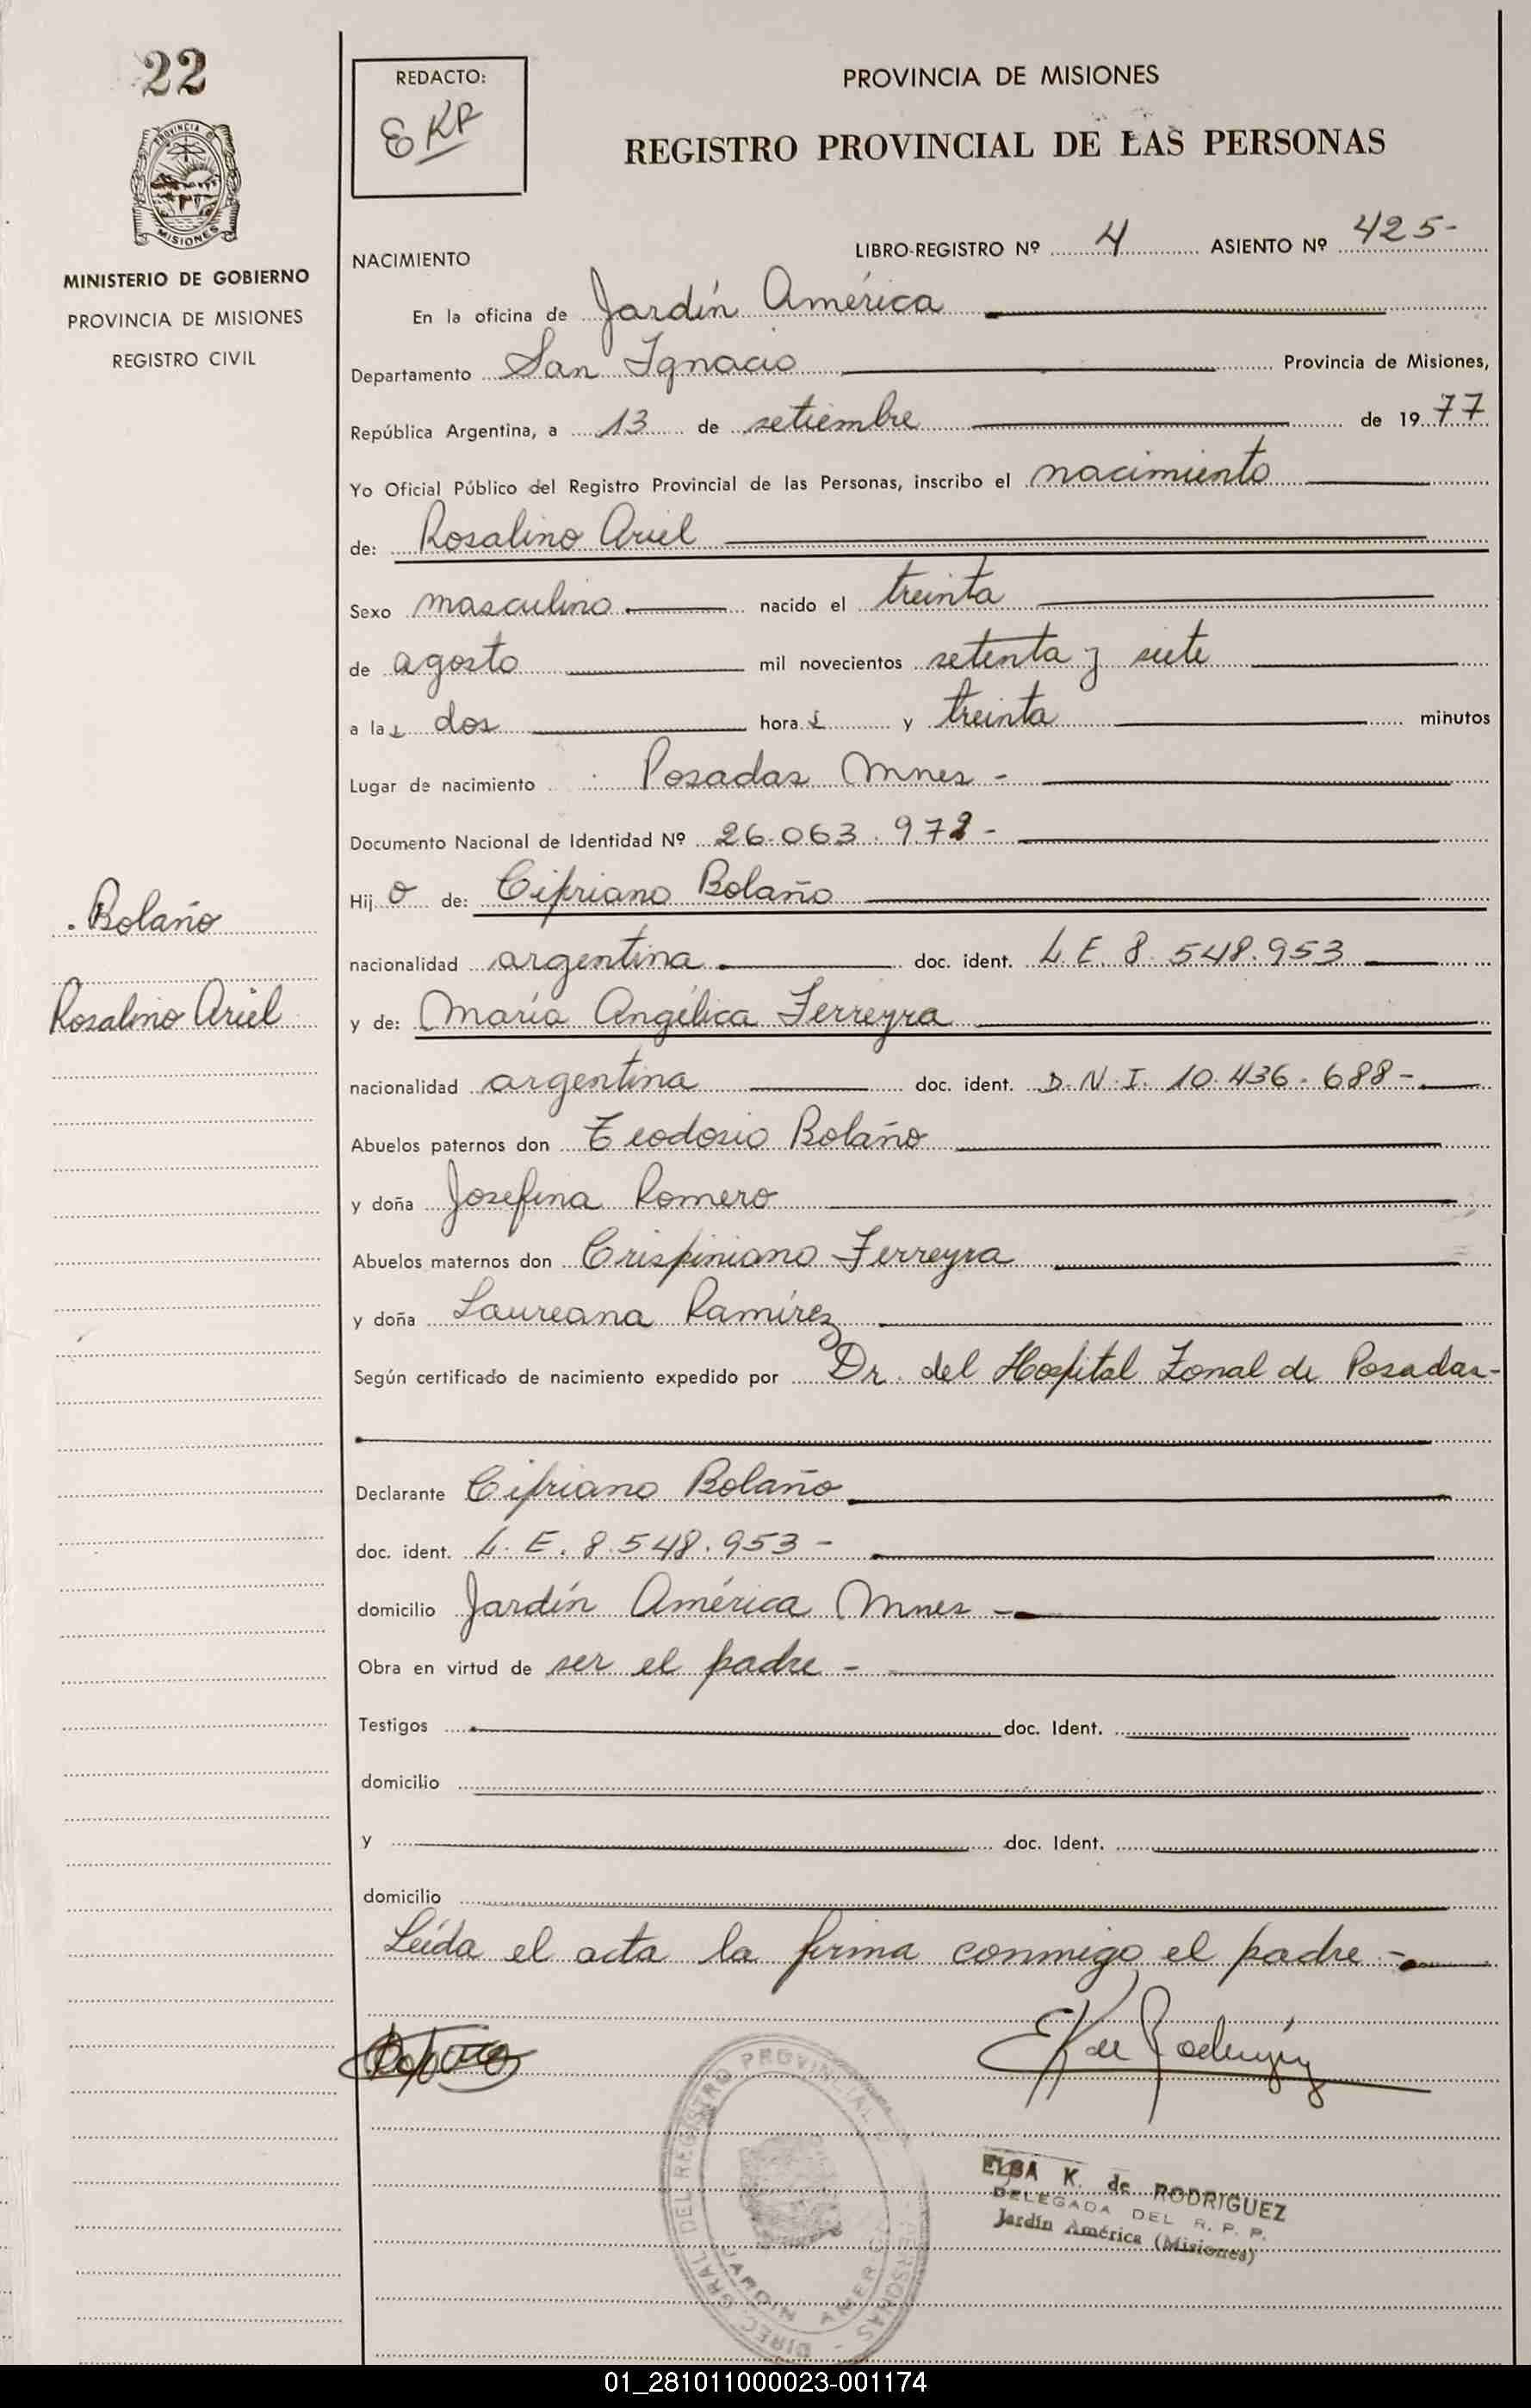 22
PROVINCIA DE
MISIONES
MINISTERIO DE GOBIERNO
PROVINCIA DE MISIONES
REGISTRO CIVIL
REDACTO:
EKR
PROVINCIA DE MISIONES
REGISTRO PROVINCIAL DE LAS PERSONAS
NACIMIENTO
LIBRO-REGISTRO Nº 4 ASIENTO Nº 425-
En la oficina de Jardín América
Departamento San Ignacio Provincia de Misiones,
República Argentina, a 13 de setiembre de 1977
Yo Oficial Público del Registro Provincial de las Personas, inscribo el nacimiento
de: Rosalino Ariel
Sexo masculino nacido el treinta
de agosto mil novecientos setenta y siete
a las dos horas y treinta minutos
Lugar de nacimiento Posadas Mnes -
Documento Nacional de Identidad Nº 26.063.972 -
Hijo de: Cipriano Bolaño
Bolaño
nacionalidad argentina doc. ident. L.E. 8.548.953
Rosalino Ariel
y de: María Angélica Ferreyra
nacionalidad argentina doc. ident. D.N.I. 10.436.688-
Abuelos paternos don Teodosio Bolaño
y doña Josefina Romero
Abuelos maternos don Crispiniano Ferreyra
y doña Laureana Ramírez
Según certificado de nacimiento expedido por Dr. del Hospital Zonal de Posadas-
Declarante Cipriano Bolaño
doc. ident. L.E. 8.548.953 -
domicilio Jardín América Mnes -
Obra en virtud de ser el padre -
Testigos doc. Ident.
domicilio
y doc. Ident.
domicilio
Leída el acta la firma conmigo el padre.-
EK de Rodríguez
DIREC. GRAL. DEL REGISTRO PROVINCIAL PERSONAS -
JARDIN AMERICA
ELBA K. de RODRIGUEZ
DELEGADA DEL R. P. P.
Jardín América (Misiones)
01_281011000023-001174